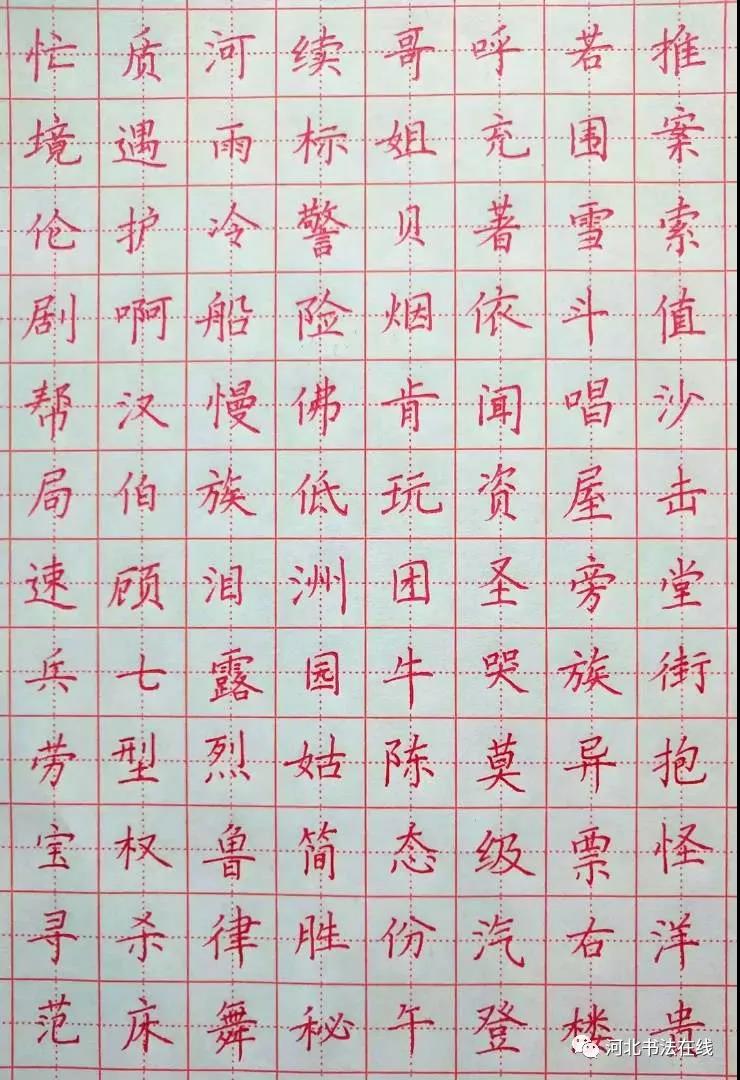 忙质河续哥呼若推
境遇雨标姐充围案
伦护冷警贝著雪索
剧啊船险烟依斗值
帮汉慢佛肯闻唱沙
局伯族低玩资屋击
速顾泪洲团圣旁堂
兵七露园牛哭族街
劳型烈姑陈莫异抱
宝权鲁简态级票怪
寻杀律胜份汽右洋
范床舞秘午登楼贵
河北书法在线